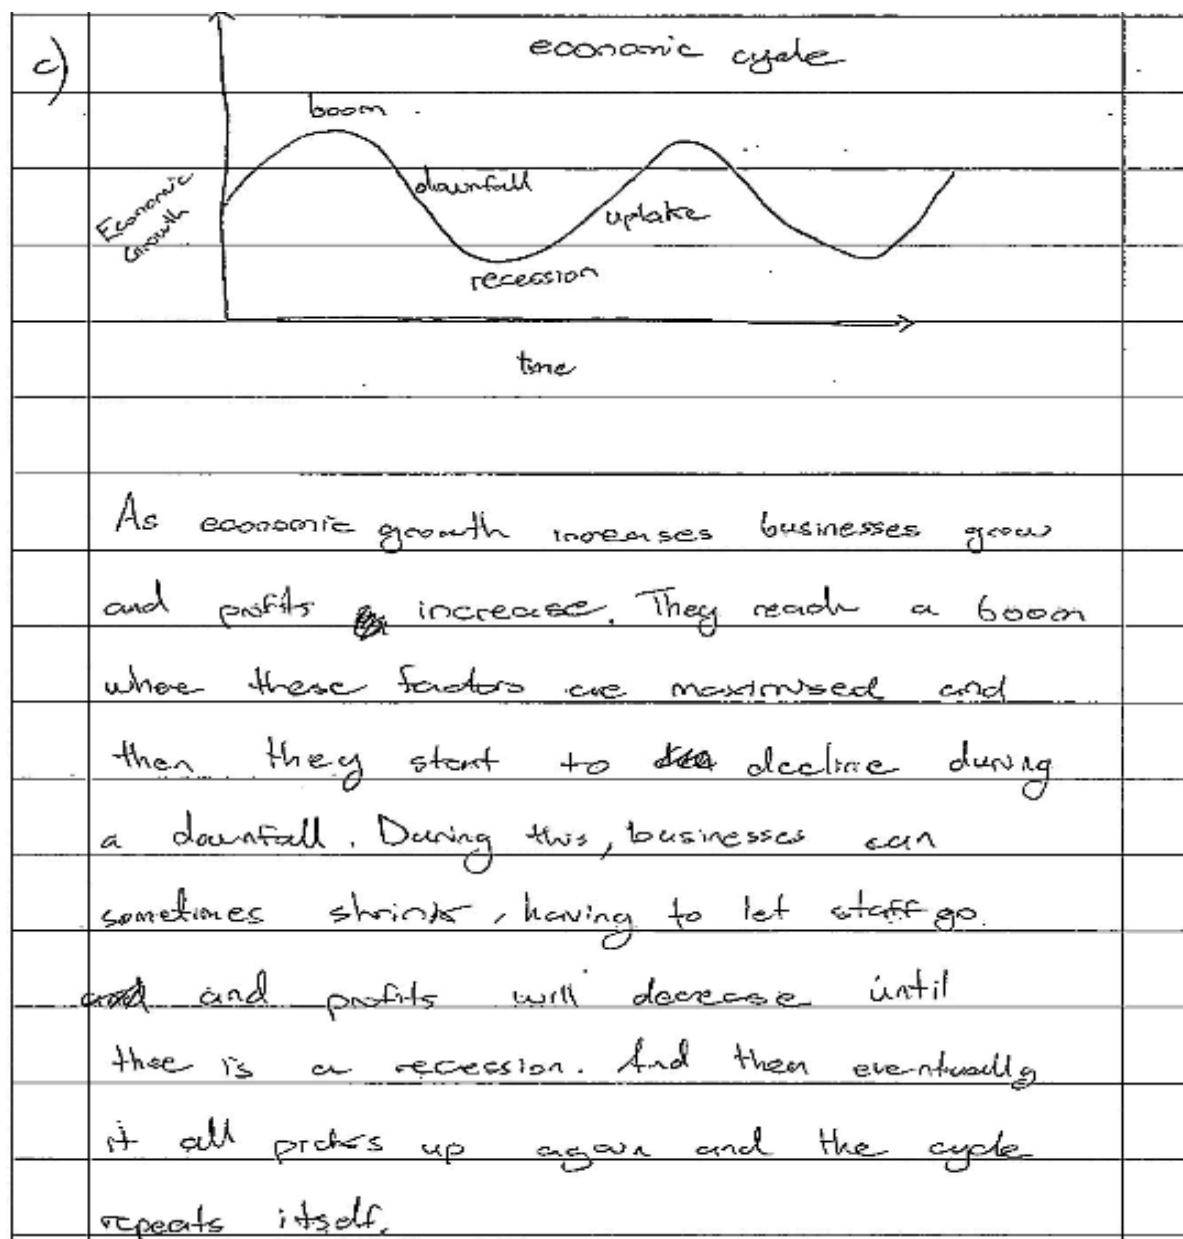 c)
economic cycle
boom
Economic
Growth
downfall
uptake
recession
time
As economic growth increases businesses grow
and profits increase. They reach a boom
where these factors are maximised and
then they start to decline during
a downfall. During this, businesses can
sometimes shrink, having to let staff go.
and profits will decrease until
there is a recession. And then eventually
it all picks up again and the cycle
repeats itself.